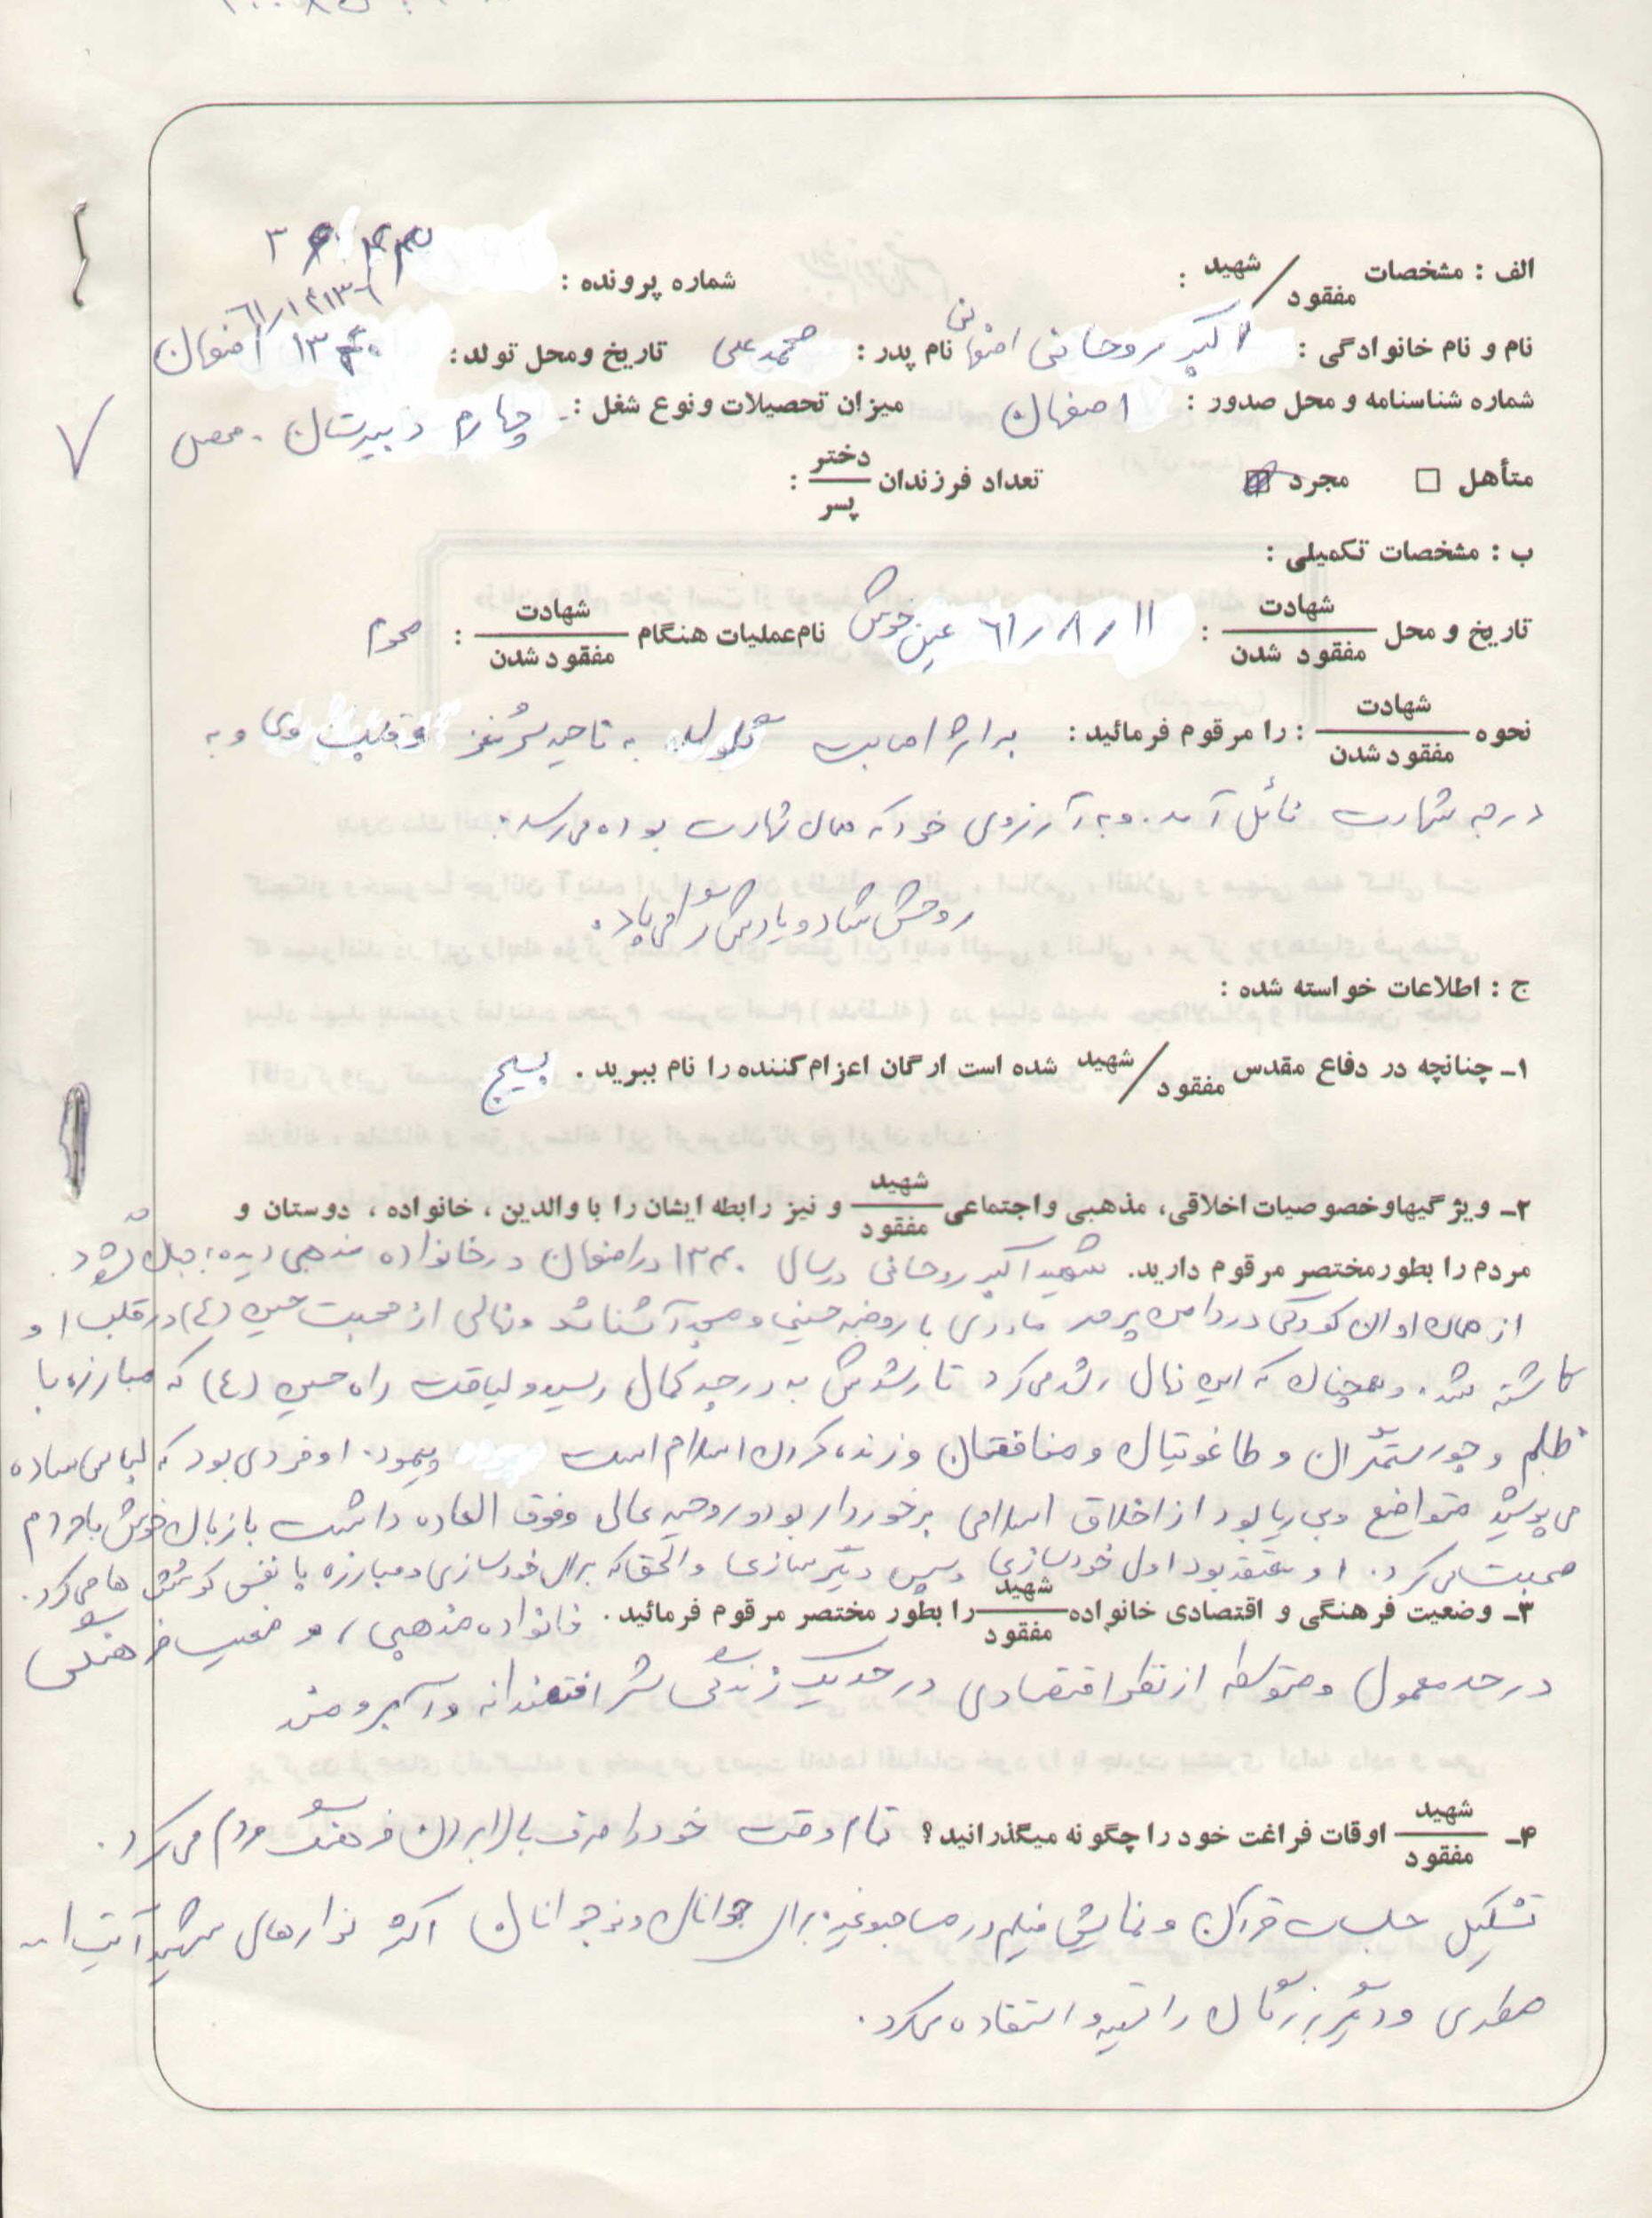 الف : مشخصات شهید / مفقود :
شماره پرونده :
نام و نام خانوادگی : اکبر روحانی اصفهانی نام پدر : محمدعلی تاریخ ومحل تولد : ۱۳۴۰ اصفهان
شماره شناسنامه و محل صدور : اصفهان میزان تحصیلات ونوع شغل : چهارم دبیرستان - محصل
متأهل □ مجرد ☒ تعداد فرزندان دختر / پسر :
ب : مشخصات تکمیلی :
تاریخ و محل شهادت / مفقود شدن : ۶۱/۸/۱۱ عین خوش نام عملیات هنگام شهادت / مفقود شدن : محرم
نحوه شهادت / مفقود شدن : را مرقوم فرمائید : بر اثر اصابت گلوله به ناحیه سر و به
درجه شهادت نائل آمد. و به آرزوی خود که همان شهادت بوده می رسد.
روحش شاد و یادش گرامی باد.
ج : اطلاعات خواسته شده :
۱- چنانچه در دفاع مقدس شهید / مفقود شده است ارگان اعزام کننده را نام ببرید . بسیج
۲- ویژگیهاوخصوصیات اخلاقی، مذهبی واجتماعی شهید / مفقود و نیز رابطه ایشان را با والدین ، خانواده ، دوستان و
مردم را بطورمختصر مرقوم دارید. شهید اکبر روحانی در سال ۱۳۴۰ در اصفهان در خانواده مذهبی دیده به جهان گشود.
از همان اوان کودکی در دامن پر مهر مادری با روضه حسینی و مسجد آشنا شد و نهالی از محبت حسین (ع) در قلب او
کاشته شد. و همچنان که این نهال رشد می کرد تا رشدش به درجه کمال رسید و لیاقت راه حسین (ع) که مبارزه با
ظلم و جور ستمگران و طاغوتیان و منافقان و زنده کردن اسلام است پیمود. او فردی بود که لباس ساده
می پوشید متواضع و بی ریا بود از اخلاق اسلامی برخوردار بود و روحیه عالی و فوق العاده داشت با زبان خوش با مردم
صحبت می کرد. او معتقد بود اول خودسازی و سپس دیگر سازی و الحق که برای خودسازی و مبارزه با نفس کوشش ها می کرد.
۳- وضعیت فرهنگی و اقتصادی خانواده شهید / مفقود را بطور مختصر مرقوم فرمائید . خانواده مذهبی، وضعیت فرهنگی
در حد معمول و متوسط از نظر اقتصادی در حد یک زندگی شرافتمندانه و آبرومند
۴- شهید / مفقود اوقات فراغت خود را چگونه میگذرانید؟ تمام وقت خود را صرف بالا بردن فرهنگ مردم می کرد.
تشکیل جلسات قرآن و نمایش فیلم در مساجد و غیره برای جوانان و نوجوانان اکثر نوارهای شهید آیت ا...
مطهری و دیگر بزرگان را تهیه و استفاده می کرد.